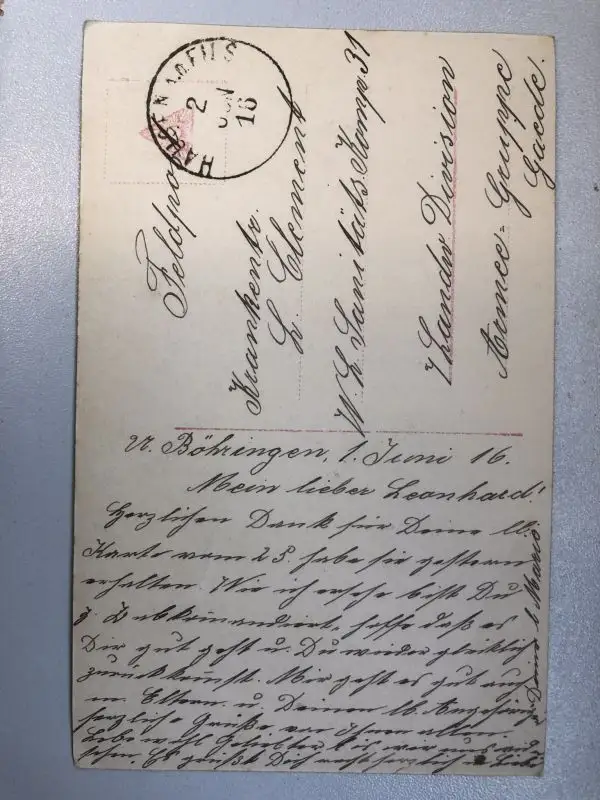 HAUSEN a.d.FILS
2
JUN
16
Feldpost
Krankentr.
L. Clement
W. L. Sanitäts Komp. 31
7 Landw Division
Armee-Gruppe
Gaede.
U. Böhringen, 1. Juni 16.
Mein lieber Leonhard!
Herzlichen Dank für Deine lb.
Karte vom 28. habe sie gestern
erhalten. Wie ich ersehe bist Du
z. Z. abkommandiert, hoffe daß es
Dir gut geht u. Du wieder glücklich
zurückkommst. Mir geht es gut auch
m. Eltern. u. Deinen lb. Angehörigen
herzliche Grüße von Ihnen allen.
Lebe wohl Geliebter
sehen. Es grüßt Dich recht herzlich
Deine l. Marie